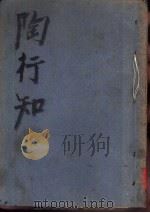 陶行知
研狗